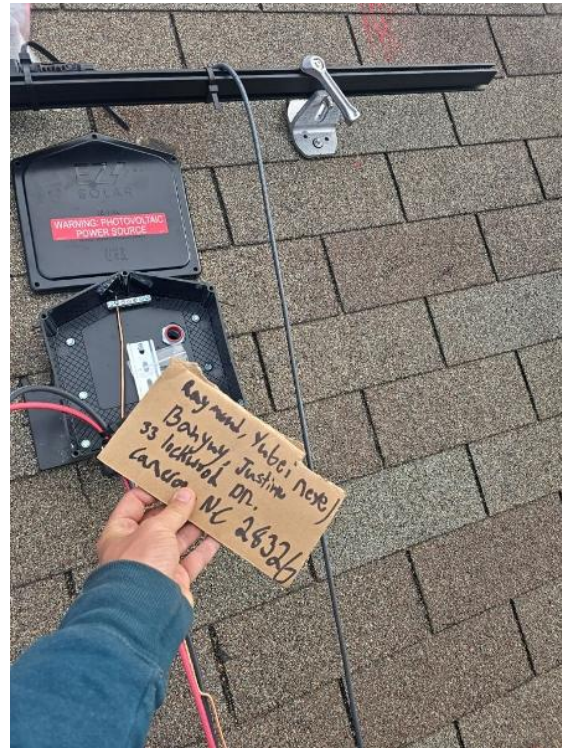 EZ
SOLAR
WARNING: PHOTOVOLTAIC
POWER SOURCE
Raymond, Yubei nexe,
Justina
33 lockwood DR.
Cameron NC 28326